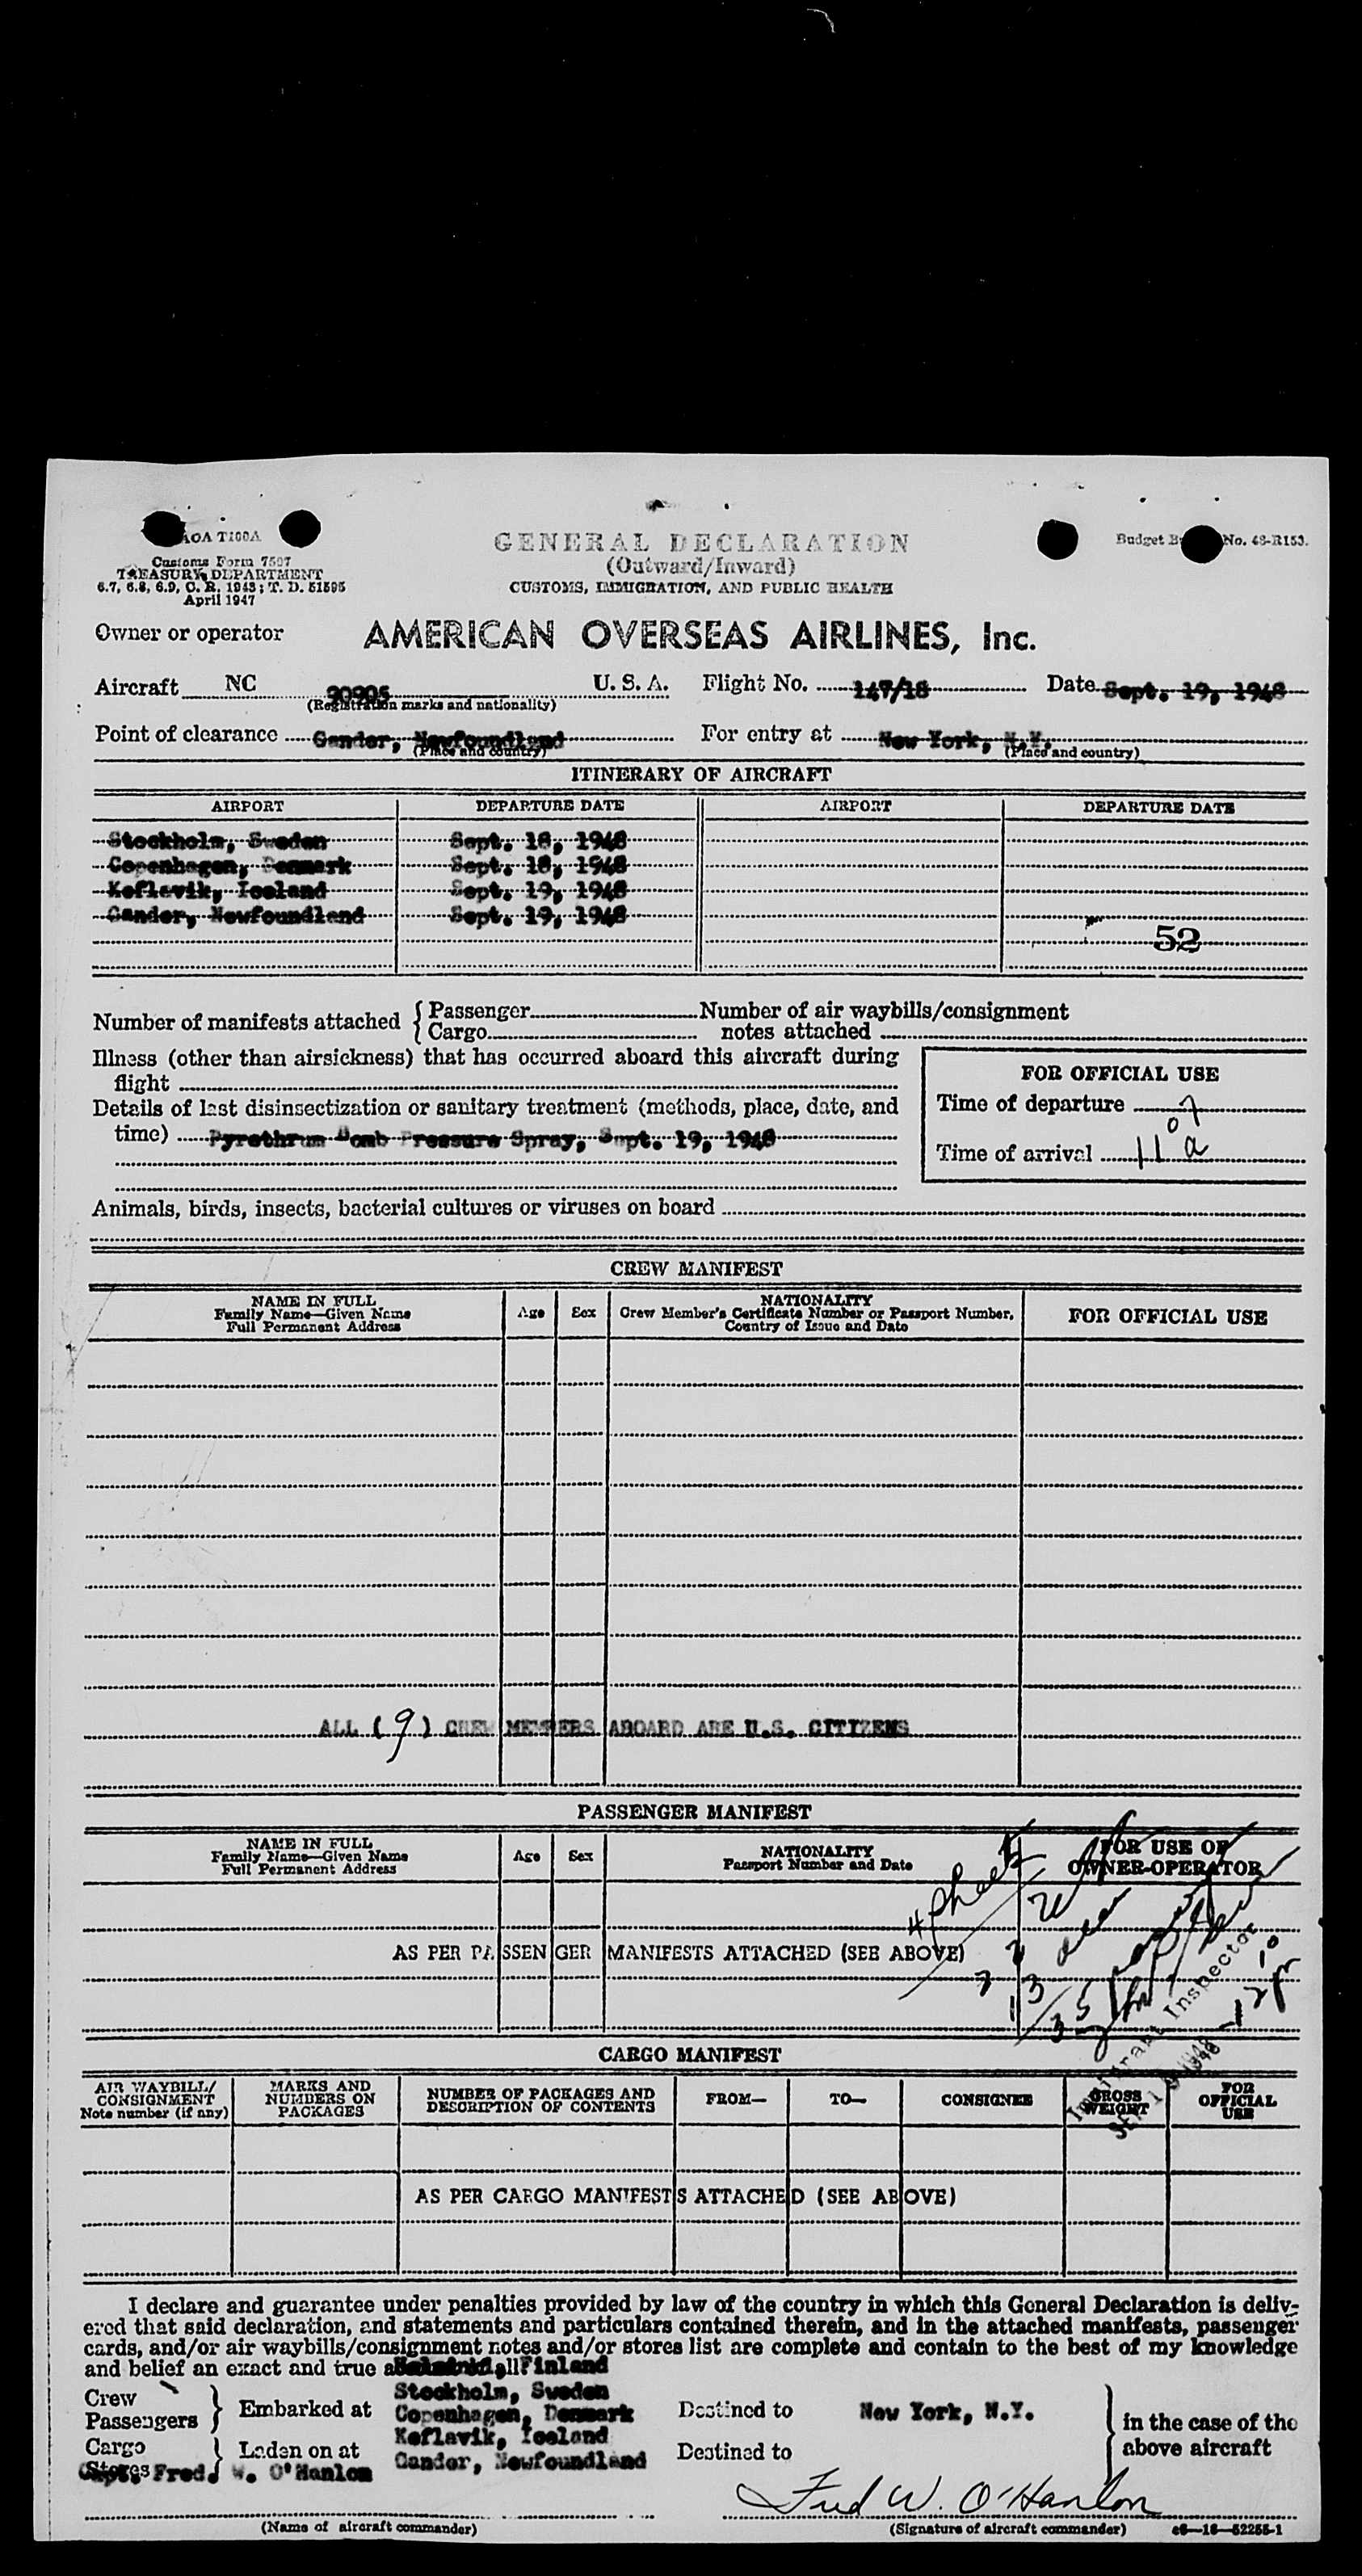 AOA T100A
Customs Form 7507
TREASURY DEPARTMENT
6.7, 6.8, 6.9, C. R. 1943; T. D. 51595
April 1947
GENERAL DECLARATION
(Outward/Inward)
CUSTOMS, IMMIGRATION, AND PUBLIC HEALTH
Budget B No. 48-R153.
Owner or operator AMERICAN OVERSEAS AIRLINES, Inc.
Aircraft NC 90905 U. S. A. Flight No. 147/18 Date Sept. 19, 1948
(Registration marks and nationality)
Point of clearance Gander, Newfoundland For entry at New York, N.Y.
(Place and country) (Place and country)
ITINERARY OF AIRCRAFT
AIRPORT DEPARTURE DATE AIRPORT DEPARTURE DATE
Stockholm, Sweden Sept. 18, 1948
Copenhagen, Denmark Sept. 18, 1948
Keflavik, Iceland Sept. 19, 1948
Gander, Newfoundland Sept. 19, 1948
52
Number of manifests attached { Passenger Number of air waybills/consignment
Cargo notes attached
Illness (other than airsickness) that has occurred aboard this aircraft during
flight
Details of last disinsectization or sanitary treatment (methods, place, date, and
time) Pyrethrum Bomb Pressure Spray, Sept. 19, 1948
FOR OFFICIAL USE
Time of departure
Time of arrival 11 07 a
Animals, birds, insects, bacterial cultures or viruses on board
CREW MANIFEST
NAME IN FULL
Family Name—Given Name
Full Permanent Address
Age Sex
NATIONALITY
Crew Member's Certificate Number or Passport Number,
Country of Issue and Date
FOR OFFICIAL USE
ALL (9) CREW MEMBERS ABOARD ARE U.S. CITIZENS
PASSENGER MANIFEST
NAME IN FULL
Family Name—Given Name
Full Permanent Address
Age Sex
NATIONALITY
Passport Number and Date
FOR USE OF
OWNER-OPERATOR
4 sheets
AS PER PASSENGER MANIFESTS ATTACHED (SEE ABOVE)
35
Immigrant Inspector
CARGO MANIFEST
AIR WAYBILL/
CONSIGNMENT
Note number (if any)
MARKS AND
NUMBERS ON
PACKAGES
NUMBER OF PACKAGES AND
DESCRIPTION OF CONTENTS
FROM— TO— CONSIGNEE
GROSS
WEIGHT
FOR
OFFICIAL
USE
AS PER CARGO MANIFESTS ATTACHED (SEE ABOVE)
I declare and guarantee under penalties provided by law of the country in which this General Declaration is deliv-
ered that said declaration, and statements and particulars contained therein, and in the attached manifests, passenger
cards, and/or air waybills/consignment notes and/or stores list are complete and contain to the best of my knowledge
and belief an exact and true Finland
Crew
Passengers } Embarked at Stockholm, Sweden
Copenhagen, Denmark Destined to New York, N.Y.
Cargo
Stores } Laden on at Keflavik, Iceland
Gander, Newfoundland Destined to
} in the case of the
above aircraft
Capt. Fred. W. O'Hanlon
Fred W. O'Hanlon
(Name of aircraft commander) (Signature of aircraft commander) c6—16—52255-1